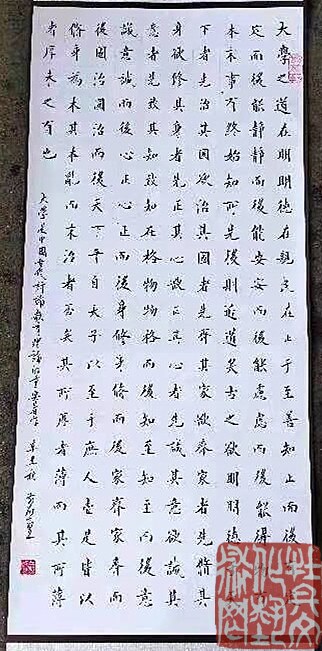 大學之道在明明德在親民在止于至善知止而後有
定而後能靜靜而後能安安而後能慮慮而後能得物有
本末事有終始知所先後則近道矣古之欲明明德
下者先治其國欲治其國者先齊其家欲齊其家者先脩其
身欲修其身者先正其心欲正其心者先誠其意欲誠其
意者先致其知致知在格物物格而後知至知至而後意
誠意誠而後心正心正而後身修身修而後家齊家齊而
後國治國治而後天下平自天子以至于庶人壹是皆以
脩身為本其本亂而末治者否矣其所厚者薄而其所薄
者厚未之有也
大學是中國古代討論教育理論的重要著作 辛丑秋